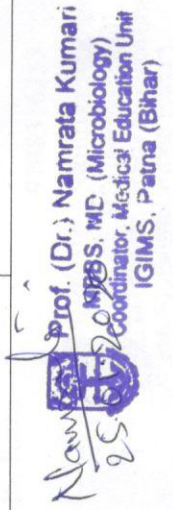 Prof. (Dr.) Namrata Kumari
MBBS, MD (Microbiology)
Coordinator, Medical Education Unit
IGIMS, Patna (Bihar)